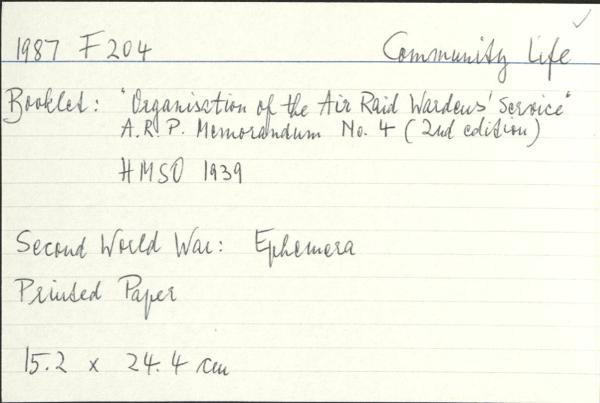 1987 F204 Community Life
Booklet: "Organisation of the Air Raid Wardens' Service"
A.R.P. Memorandum No. 4 (2nd edition)
HMSO 1939
Second World War: Ephemera
Printed Paper
15.2 x 24.4 cm